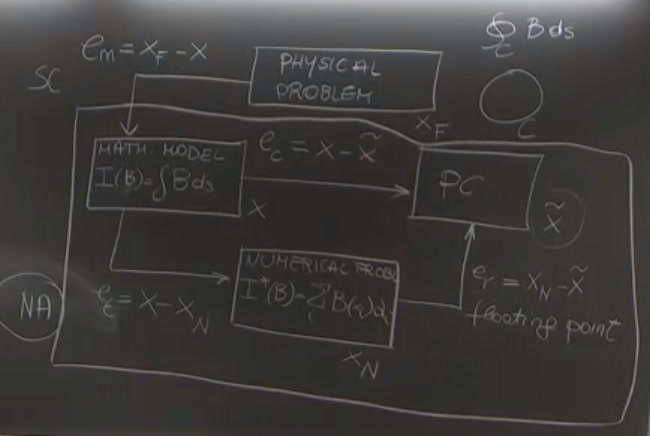 e_m = x_F - x
PHYSICAL
PROBLEM
x_F
∮_C B ds
C
SC
MATH. MODEL
I(B) = ∫ B ds
x
e_c = x - x̃
PC
x̃
NA
e_c = x - x_N
NUMERICAL PROB
x_N
e_r = x_N - x̃
floating point